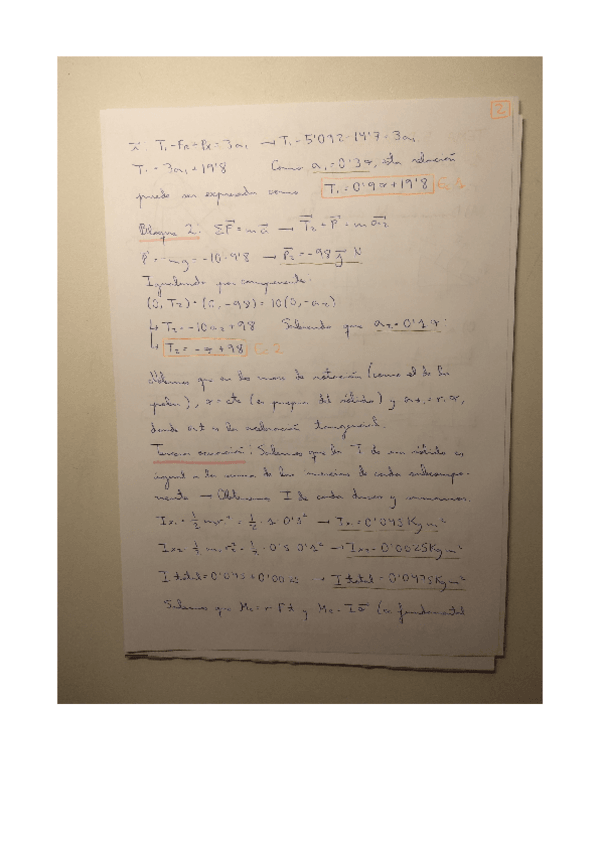 2
i: T₁-Fr-Px=3a₁ → T₁-5'092-14'7=3a₁
T₁=3a₁+19'8 Como a₁=0'3α, esta relación
puede ser expresada como T₁=0'9α+19'8 Ec 1
Bloque 2: ΣF=ma → T₂+P=ma₂
P=-mg=-10·9'8 → P₂=-98 j N
Igualando por componente:
(0, T₂)+(0,-98)=10(0,-a₂)
↳ T₂=-10a₂+98 Sabiendo que a₂=0'1α
↳ T₂=-α+98 Ec 2
que en los casos de rotación (como el de las
poleas), α=cte (es propia del sólido) y at=r·α,
donde at es la aceleración tangencial.
Tercera ecuación: Sabemos que la I de un sólido es
igual a la suma de las inercias de cada subcompo-
nente → Obtenemos I de cada disco y sumamos.
Ix₁=½mr₁²=½·1·0'3² → Ix₁=0'045 Kg m²
Ix₂=½m₂r₂²=½·0'5·0'1² → Ix₂=0'0025 Kg m²
I total=0'045+0'0025 → I total=0'0475 Kg m²
Sabemos que y (ec fundamental